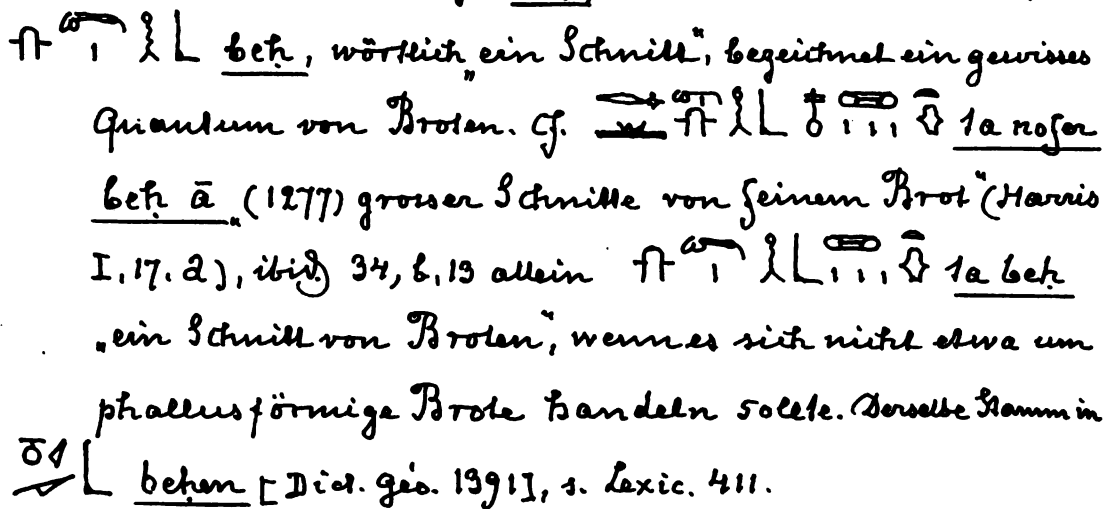 beḥ, wörtlich „ein Schnitt“, bezeichnet ein gewisses
Quantum von Broten. Cf. ta nofer
beḥ ā „(1277) grosser Schnitte von feinem Brot“ (Harris
I, 17. a), ibid. 34, b, 13 allein ta beḥ
„ein Schnitt von Broten“, wenn es sich nicht etwa um
phallusförmige Brote handeln sollte. Derselbe Stamm in
beḥen [Dict. géo. 1391], s. Lexic. 411.